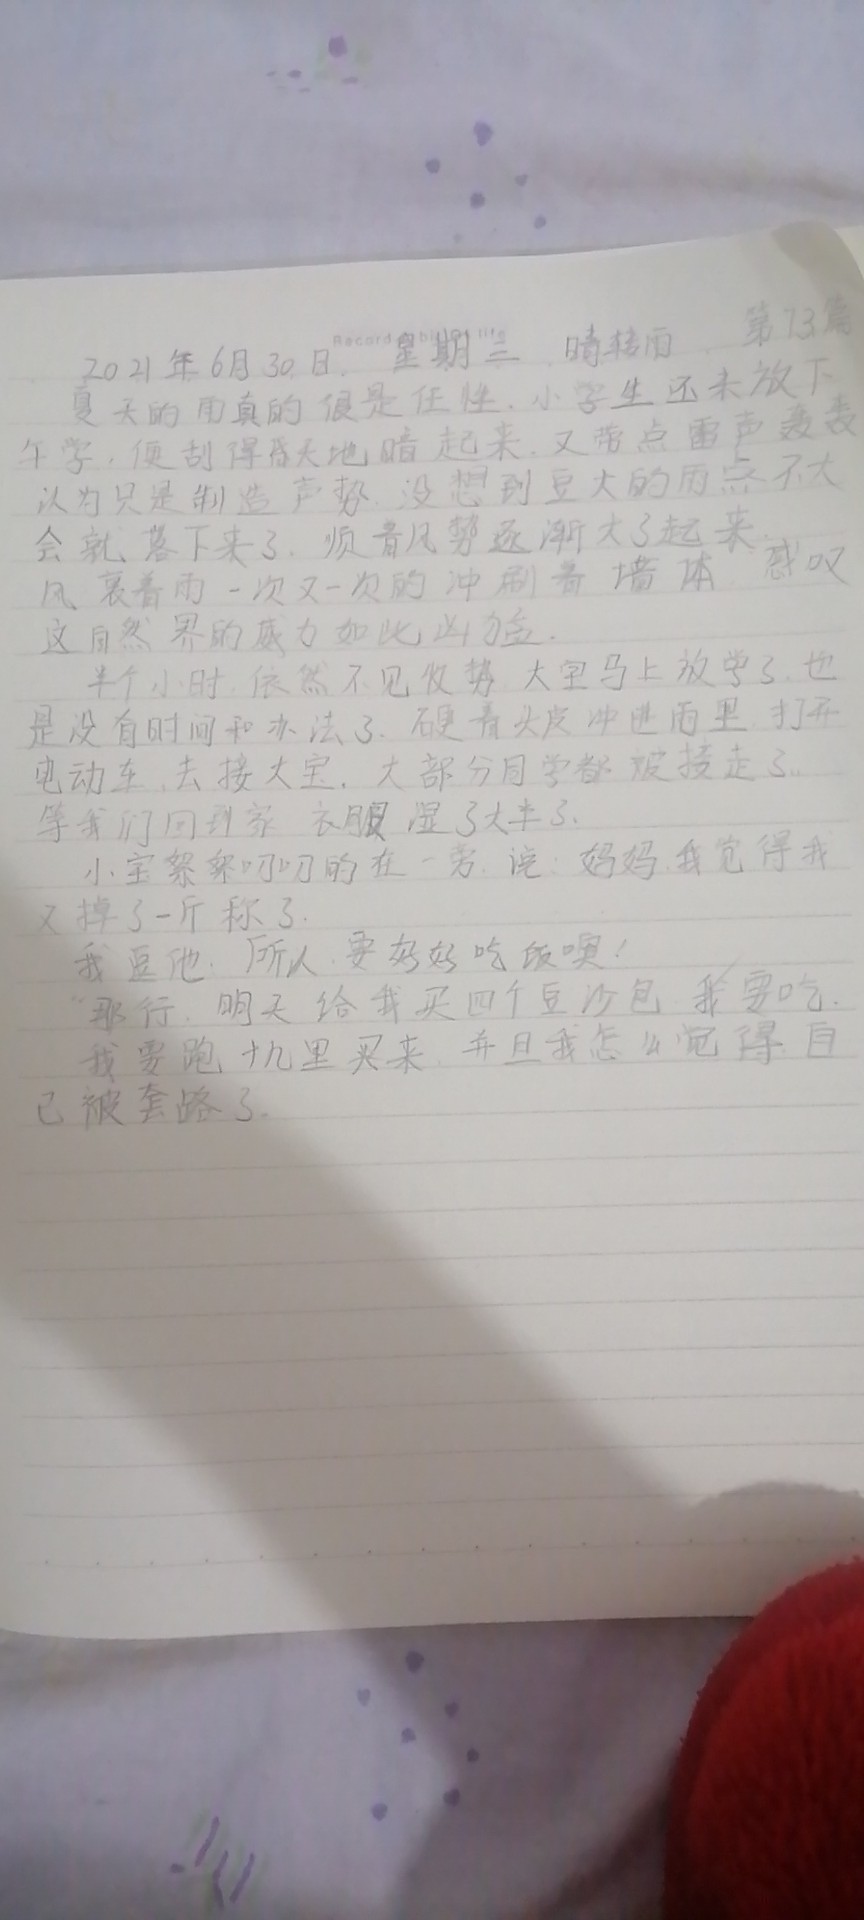 第73篇
Record
2021年6月30日. 星期三 晴转雨
夏天的雨真的很是任性.小学生还未放下
午学.便刮得昏天地暗起来.又带点雷声轰轰
认为只是制造声势.没想到豆大的雨点不大
会就落下来了.顺着风势逐渐大了起来.
风裹着雨一次又一次的冲刷着墙体 感叹
这自然界的威力如此凶猛.
半个小时.依然不见收势 大宝马上放学了.也
是没有时间和办法了.硬着头皮冲进雨里.打开
电动车.去接大宝.大部分同学都被接走了..
等我们回到家 衣服湿了大半了.
小宝絮絮叨叨的在一旁.说:妈妈.我觉得我
又掉了一斤称了.
我逗他.所以.要好好吃饭噢!
"那行.明天给我买四个豆沙包 我要吃.
我要跑十九里买来.并且我怎么觉得自
己被套路了.